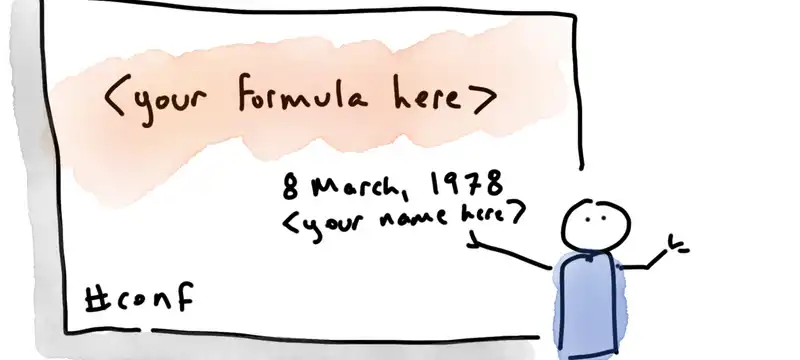 <your formula here>
8 March, 1978
<your name here>
#conf